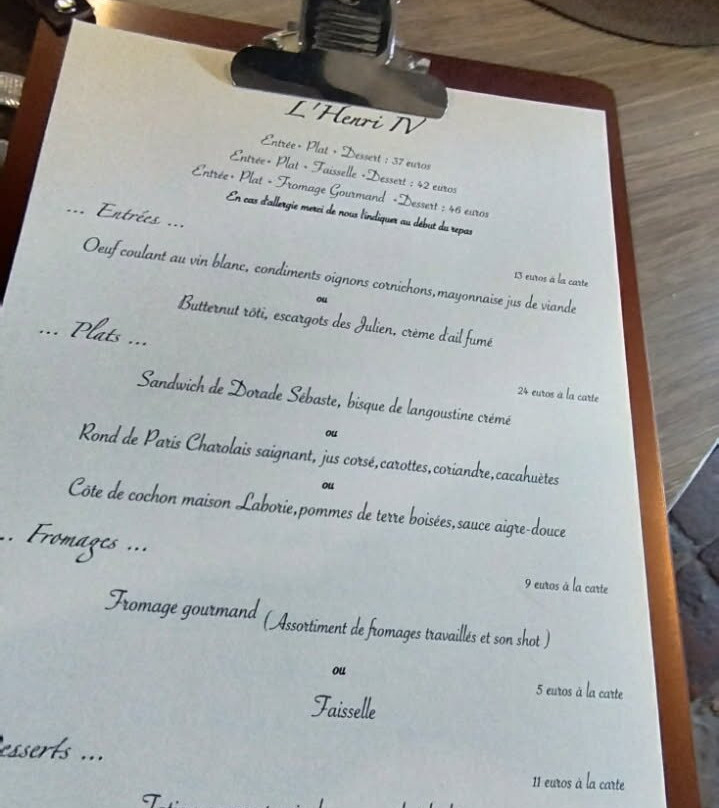 L'Henri IV
Entrée + Plat + Dessert : 37 euros
Entrée + Plat + Faisselle + Dessert : 42 euros
Entrée + Plat + Fromage Gourmand + Dessert : 46 euros
En cas d'allergie merci de nous l'indiquer au début du repas
... Entrées ...
13 euros à la carte
Oeuf coulant au vin blanc, condiments oignons cornichons, mayonnaise jus de viande
ou
Butternut rôti, escargots des Julien, crème d'ail fumé
... Plats ...
24 euros à la carte
Sandwich de Dorade Sébaste, bisque de langoustine crémé
ou
Rond de Paris Charolais saignant, jus corsé, carottes, coriandre, cacahuètes
ou
Côte de cochon maison Laborie, pommes de terre boisées, sauce aigre-douce
.. Fromages ...
9 euros à la carte
Fromage gourmand (Assortiment de fromages travaillés et son shot )
ou
5 euros à la carte
Faisselle
esserts ...
11 euros à la carte